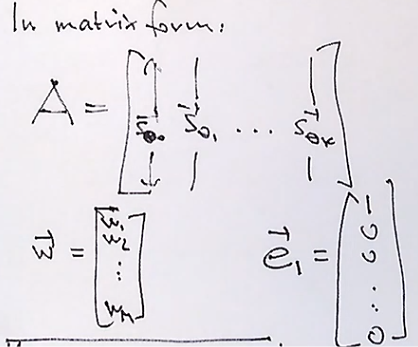 In matrix form:
A = [ s⃗θ₀ s⃗θ₁ ... s⃗θₖ ]
w⃗ = [ w₁ w₂ ... wₘ ] e⃗₁ = [ 1 0 0 ... 0 ]